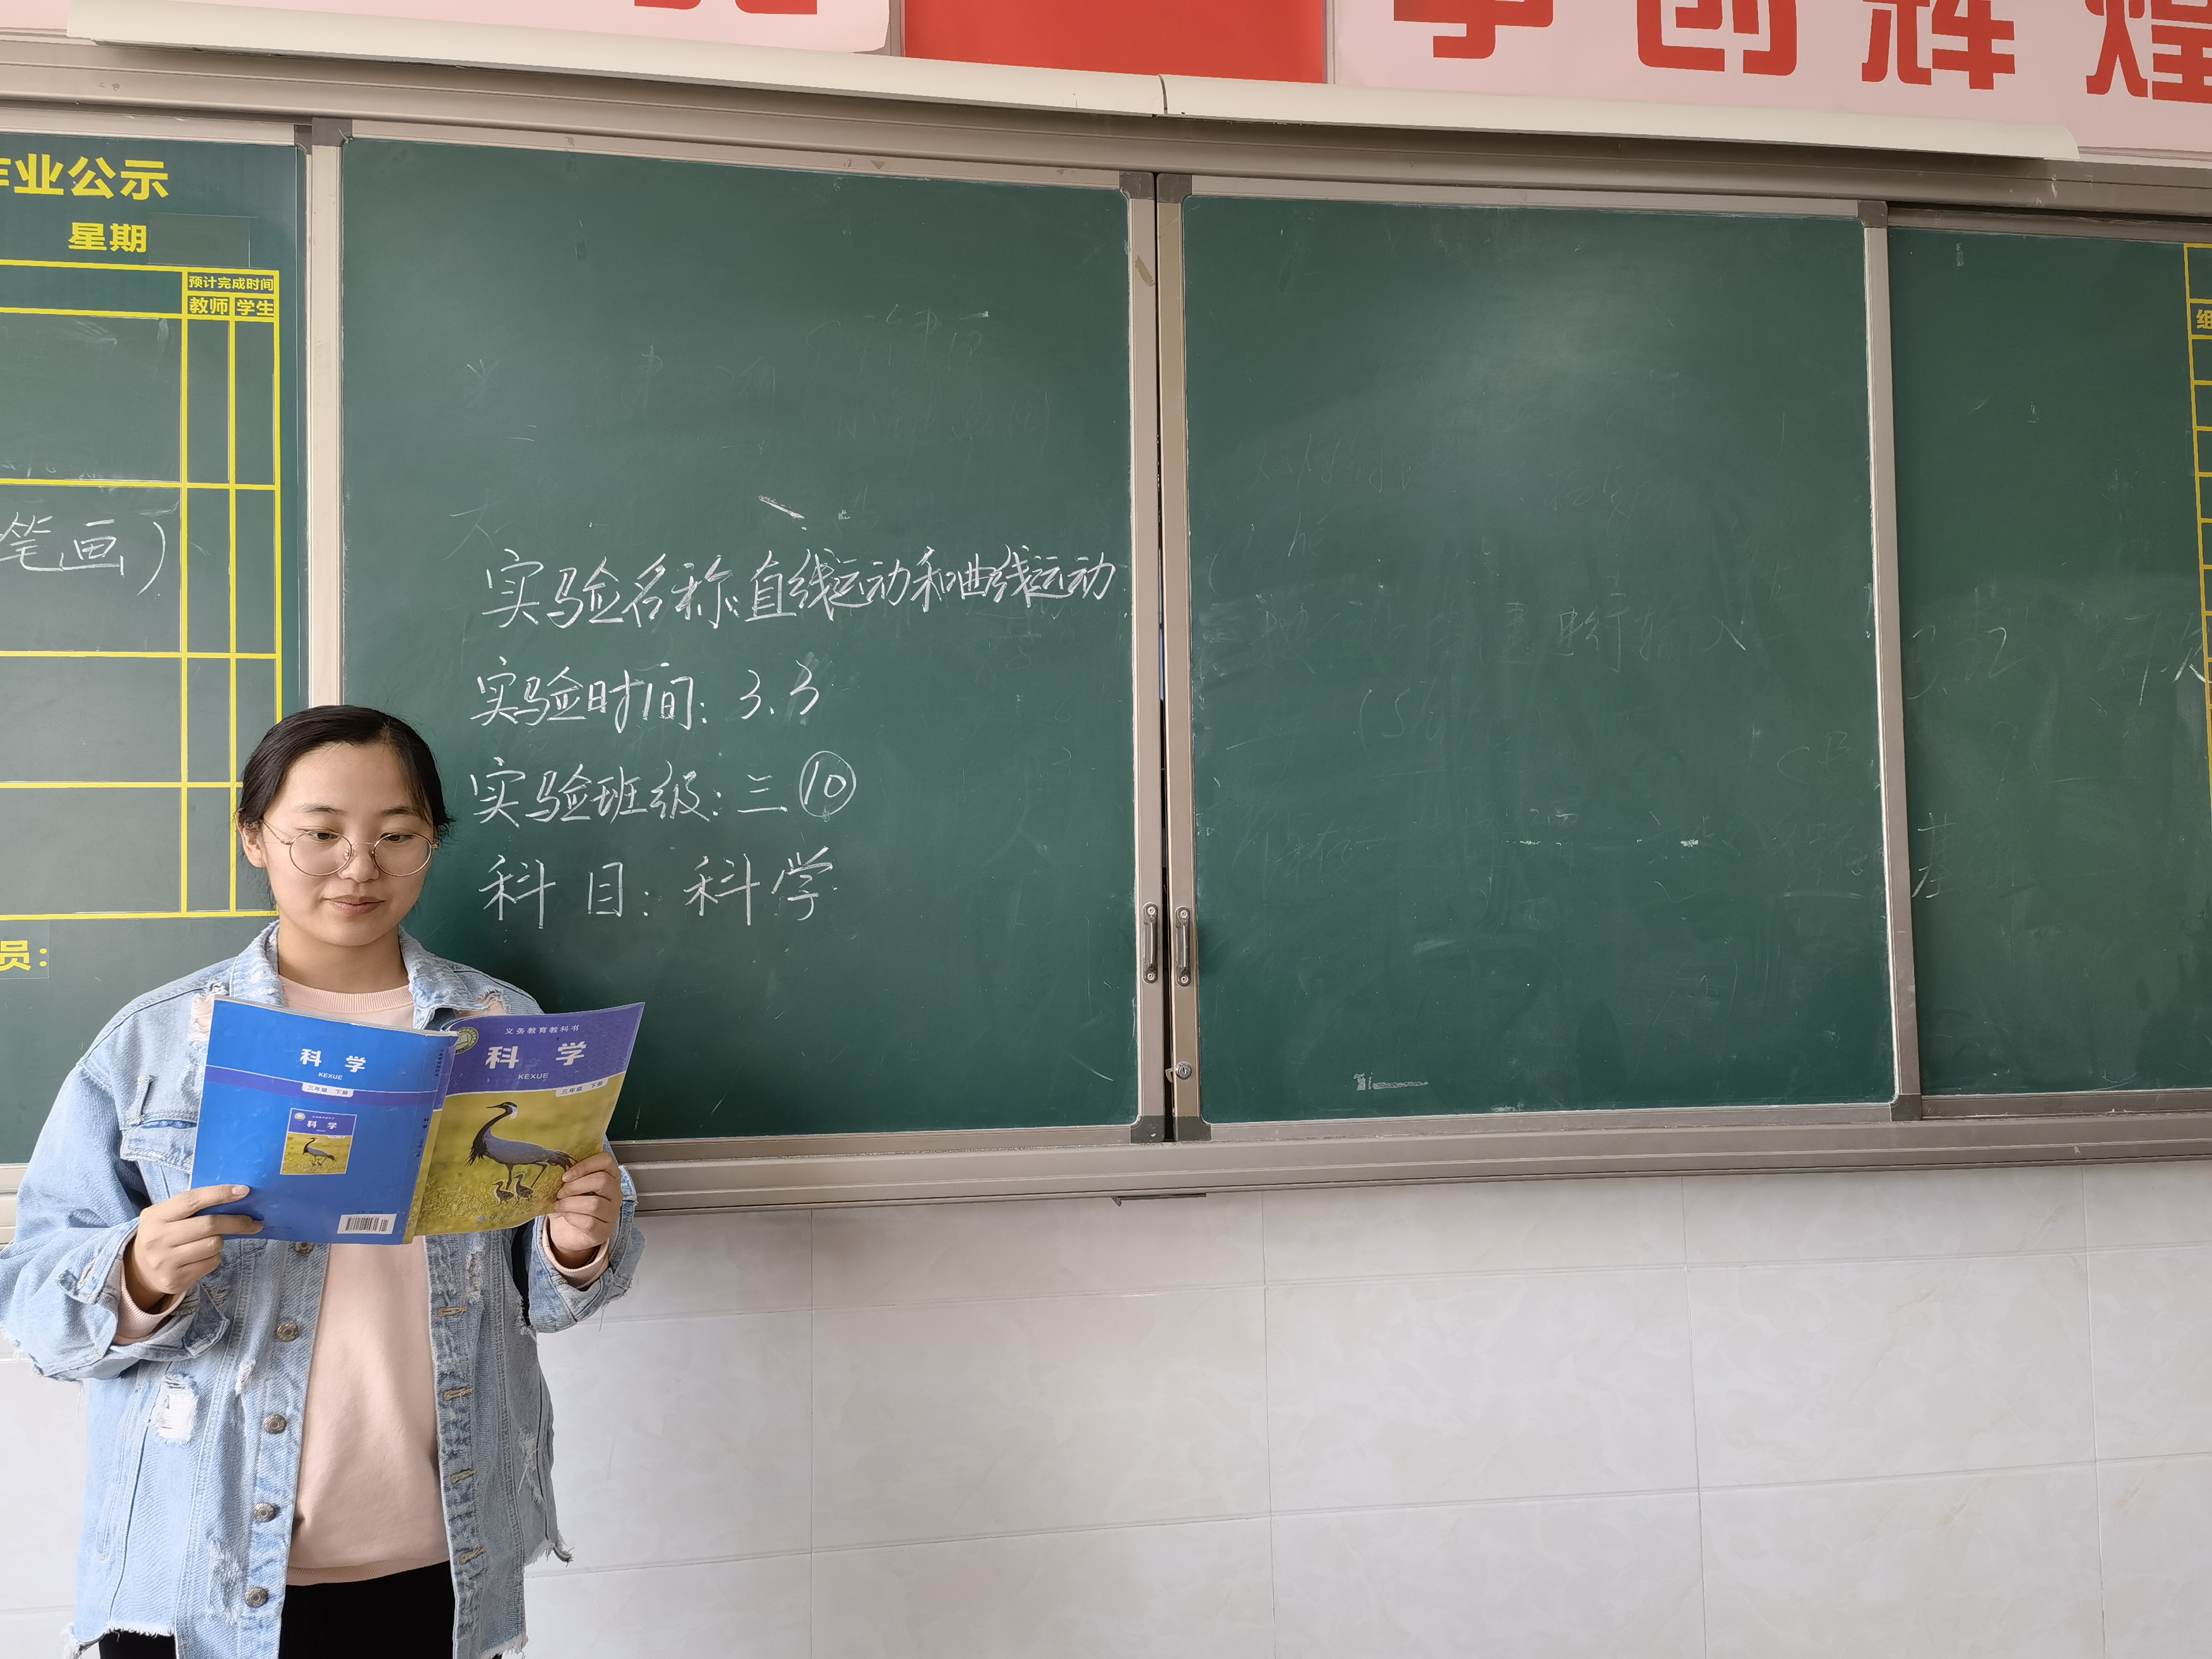 创辉煌
业公示
星期
预计完成时间
教师 学生
笔画）
实验名称:直线运动和曲线运动
实验时间: 3.3
实验班级: 三⑩
科 目: 科学
员:
组
科 学
KEXUE
三年级 下册
科 学
义务教育教科书
科 学
KEXUE
三年级 下册